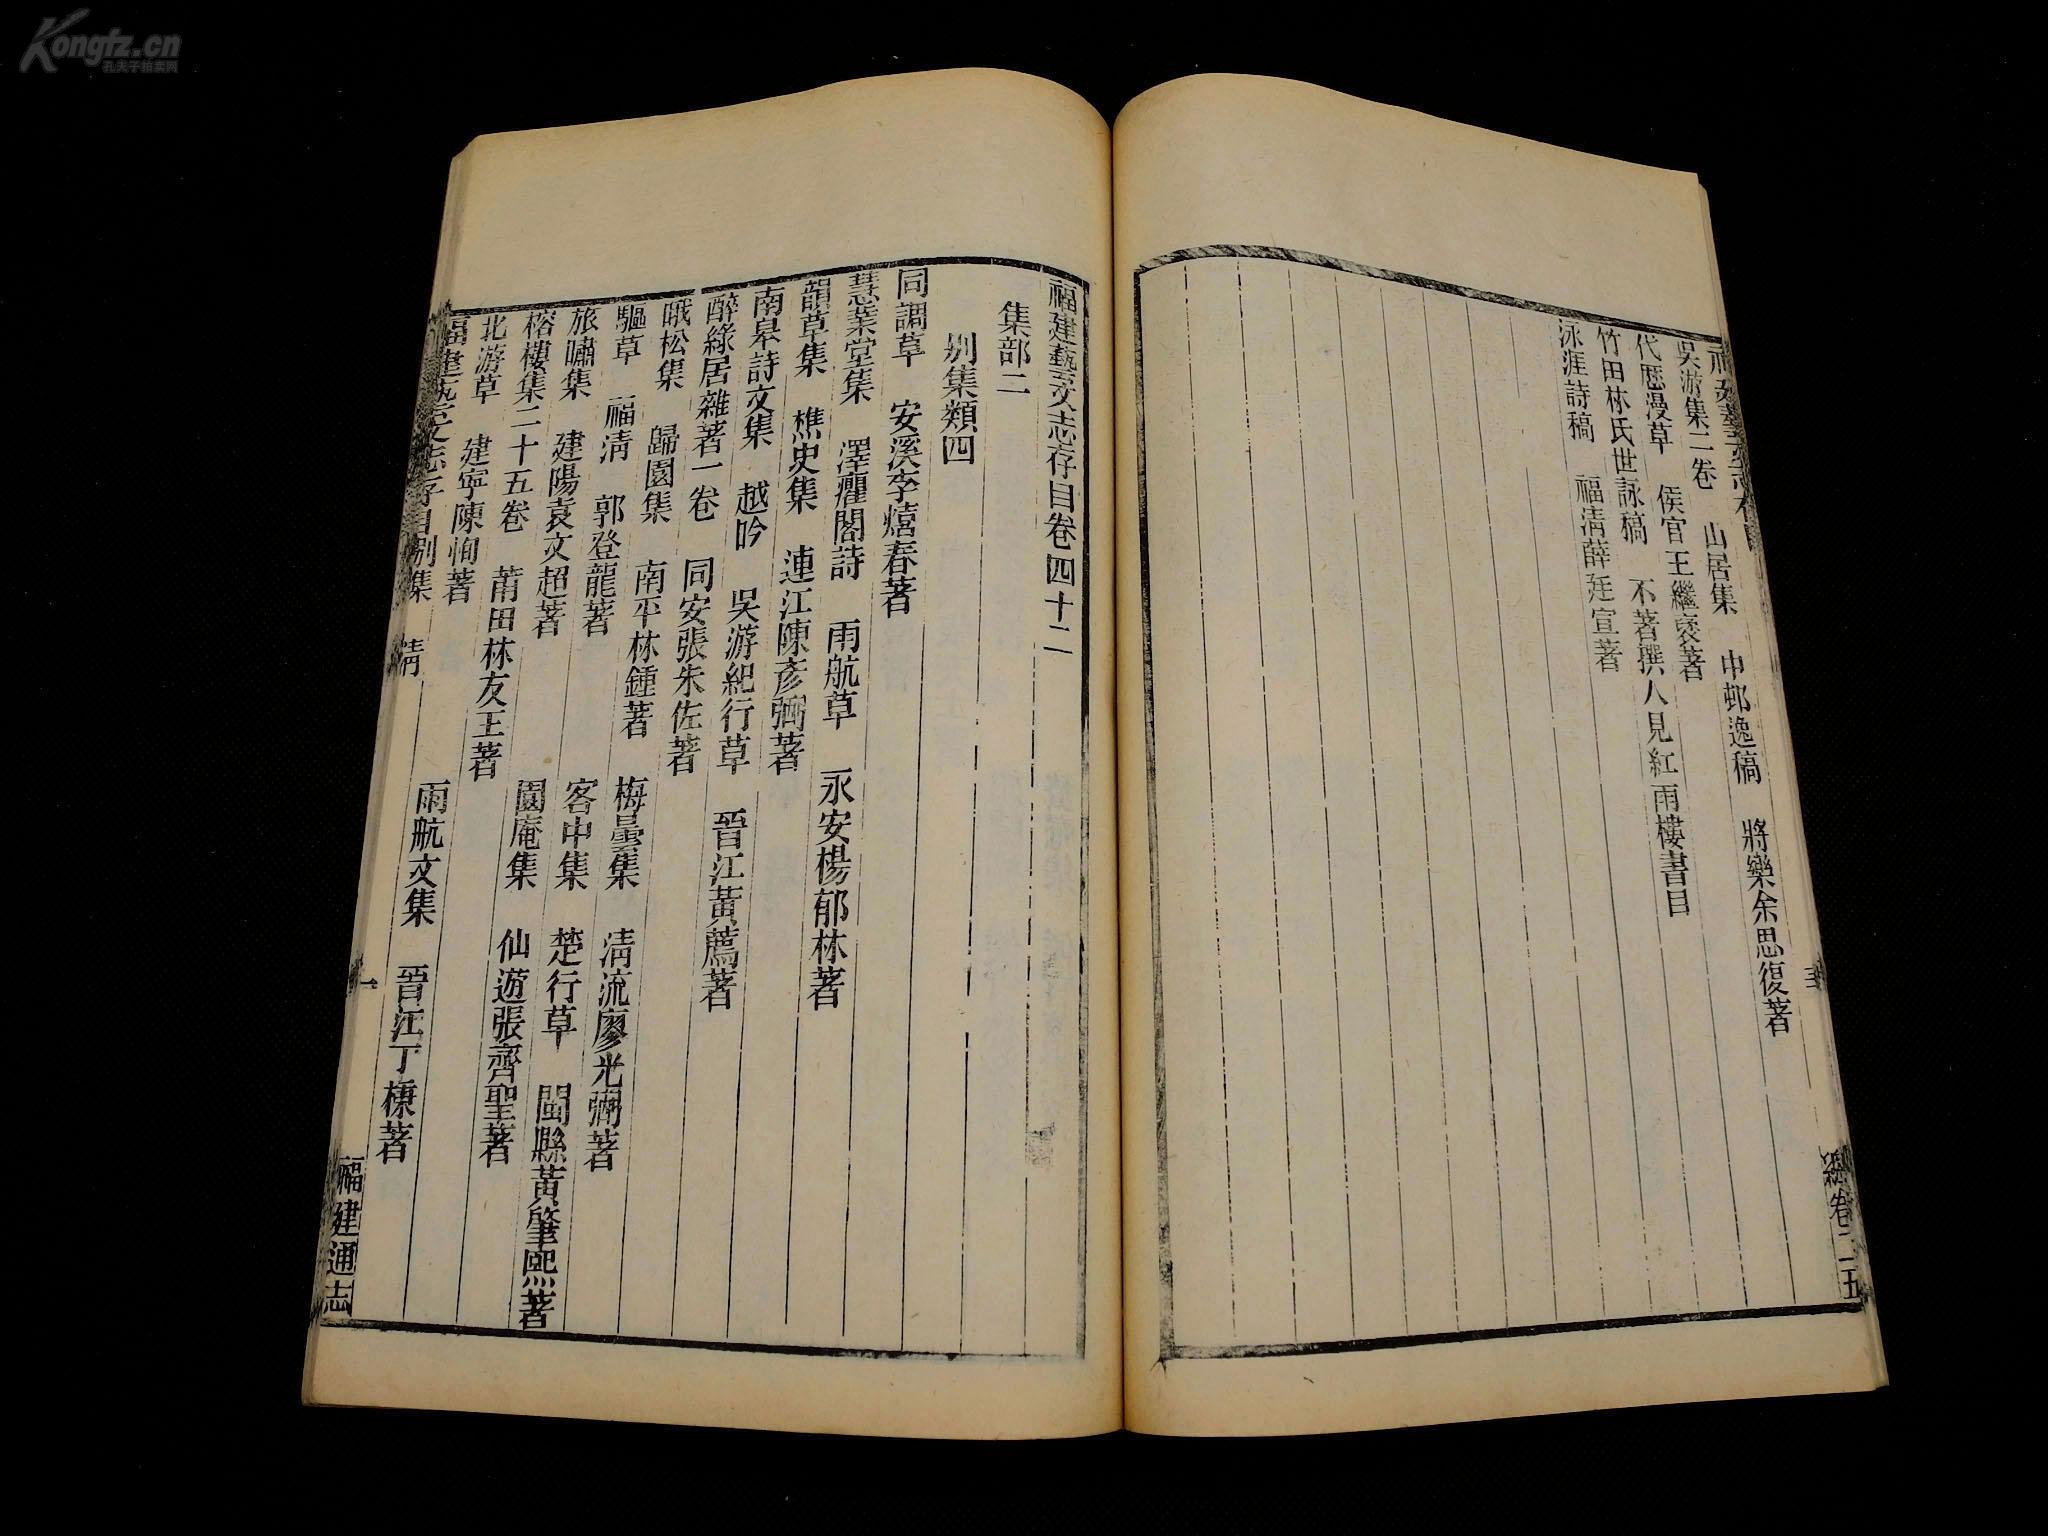 Kongfz.cn
孔夫子拍卖网
吳游集二卷　山居集　中邨逸稿　將樂余思復著
代厯漫草　侯官王繼褒著
竹田林氏世詠稿　不著撰人見紅雨樓書目
泳涯詩稿　福清薛廷宣著
總卷二五
福建藝文志存目卷四十二
集部二
別集類四
同調草　安溪李熺春著
慧業堂集　澤癯閣詩　雨航草　永安楊郁林著
韻草集　樵史集　連江陳彥弼著
南皋詩文集　越吟　吳游紀行草　晉江黃薦著
醉綠居雜著一卷　同安張朱佐著
哦松集　歸園集　南平林鍾著　梅曇集　清流廖光弼著
驅草　福清　郭登龍著　客中集　楚行草　閩縣黃肇熙著
旅嘯集　建陽袁文超著　園庵集　仙遊張齊聖著
榕樓集二十五卷　莆田林友王著
北游草　建寧陳恂著　雨航文集　晉江丁棟著
福建藝文志存目別集　清　一　福建通志